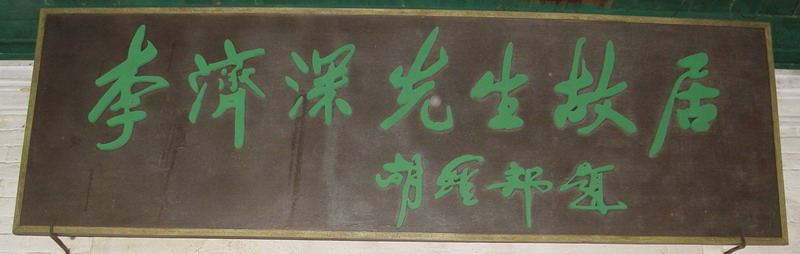 李濟深先生故居
胡耀邦題